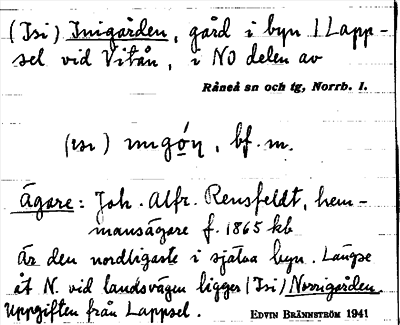 (Isi) Inigården, gård i byn i Lapp-
sel vid Vitån, i NO delen av
Råneå sn och tg, Norrb. l.
bf. m.
Ägare: Joh. Alfr. Rensfeldt, hem-
mansägare f. 1865 kb
Är den nordligaste i själva byn. Längre
åt N. vid landsvägen ligger (Isi) Norrigården.
Uppgiften från Lappsel. EDVIN BRÄNNSTRÖM 1941